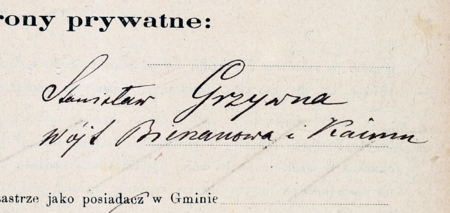 rony prywatne:
Stanisław Grzywna
wójt Bienanowa i Kaimu
zastrze jako posiadacz w Gminie